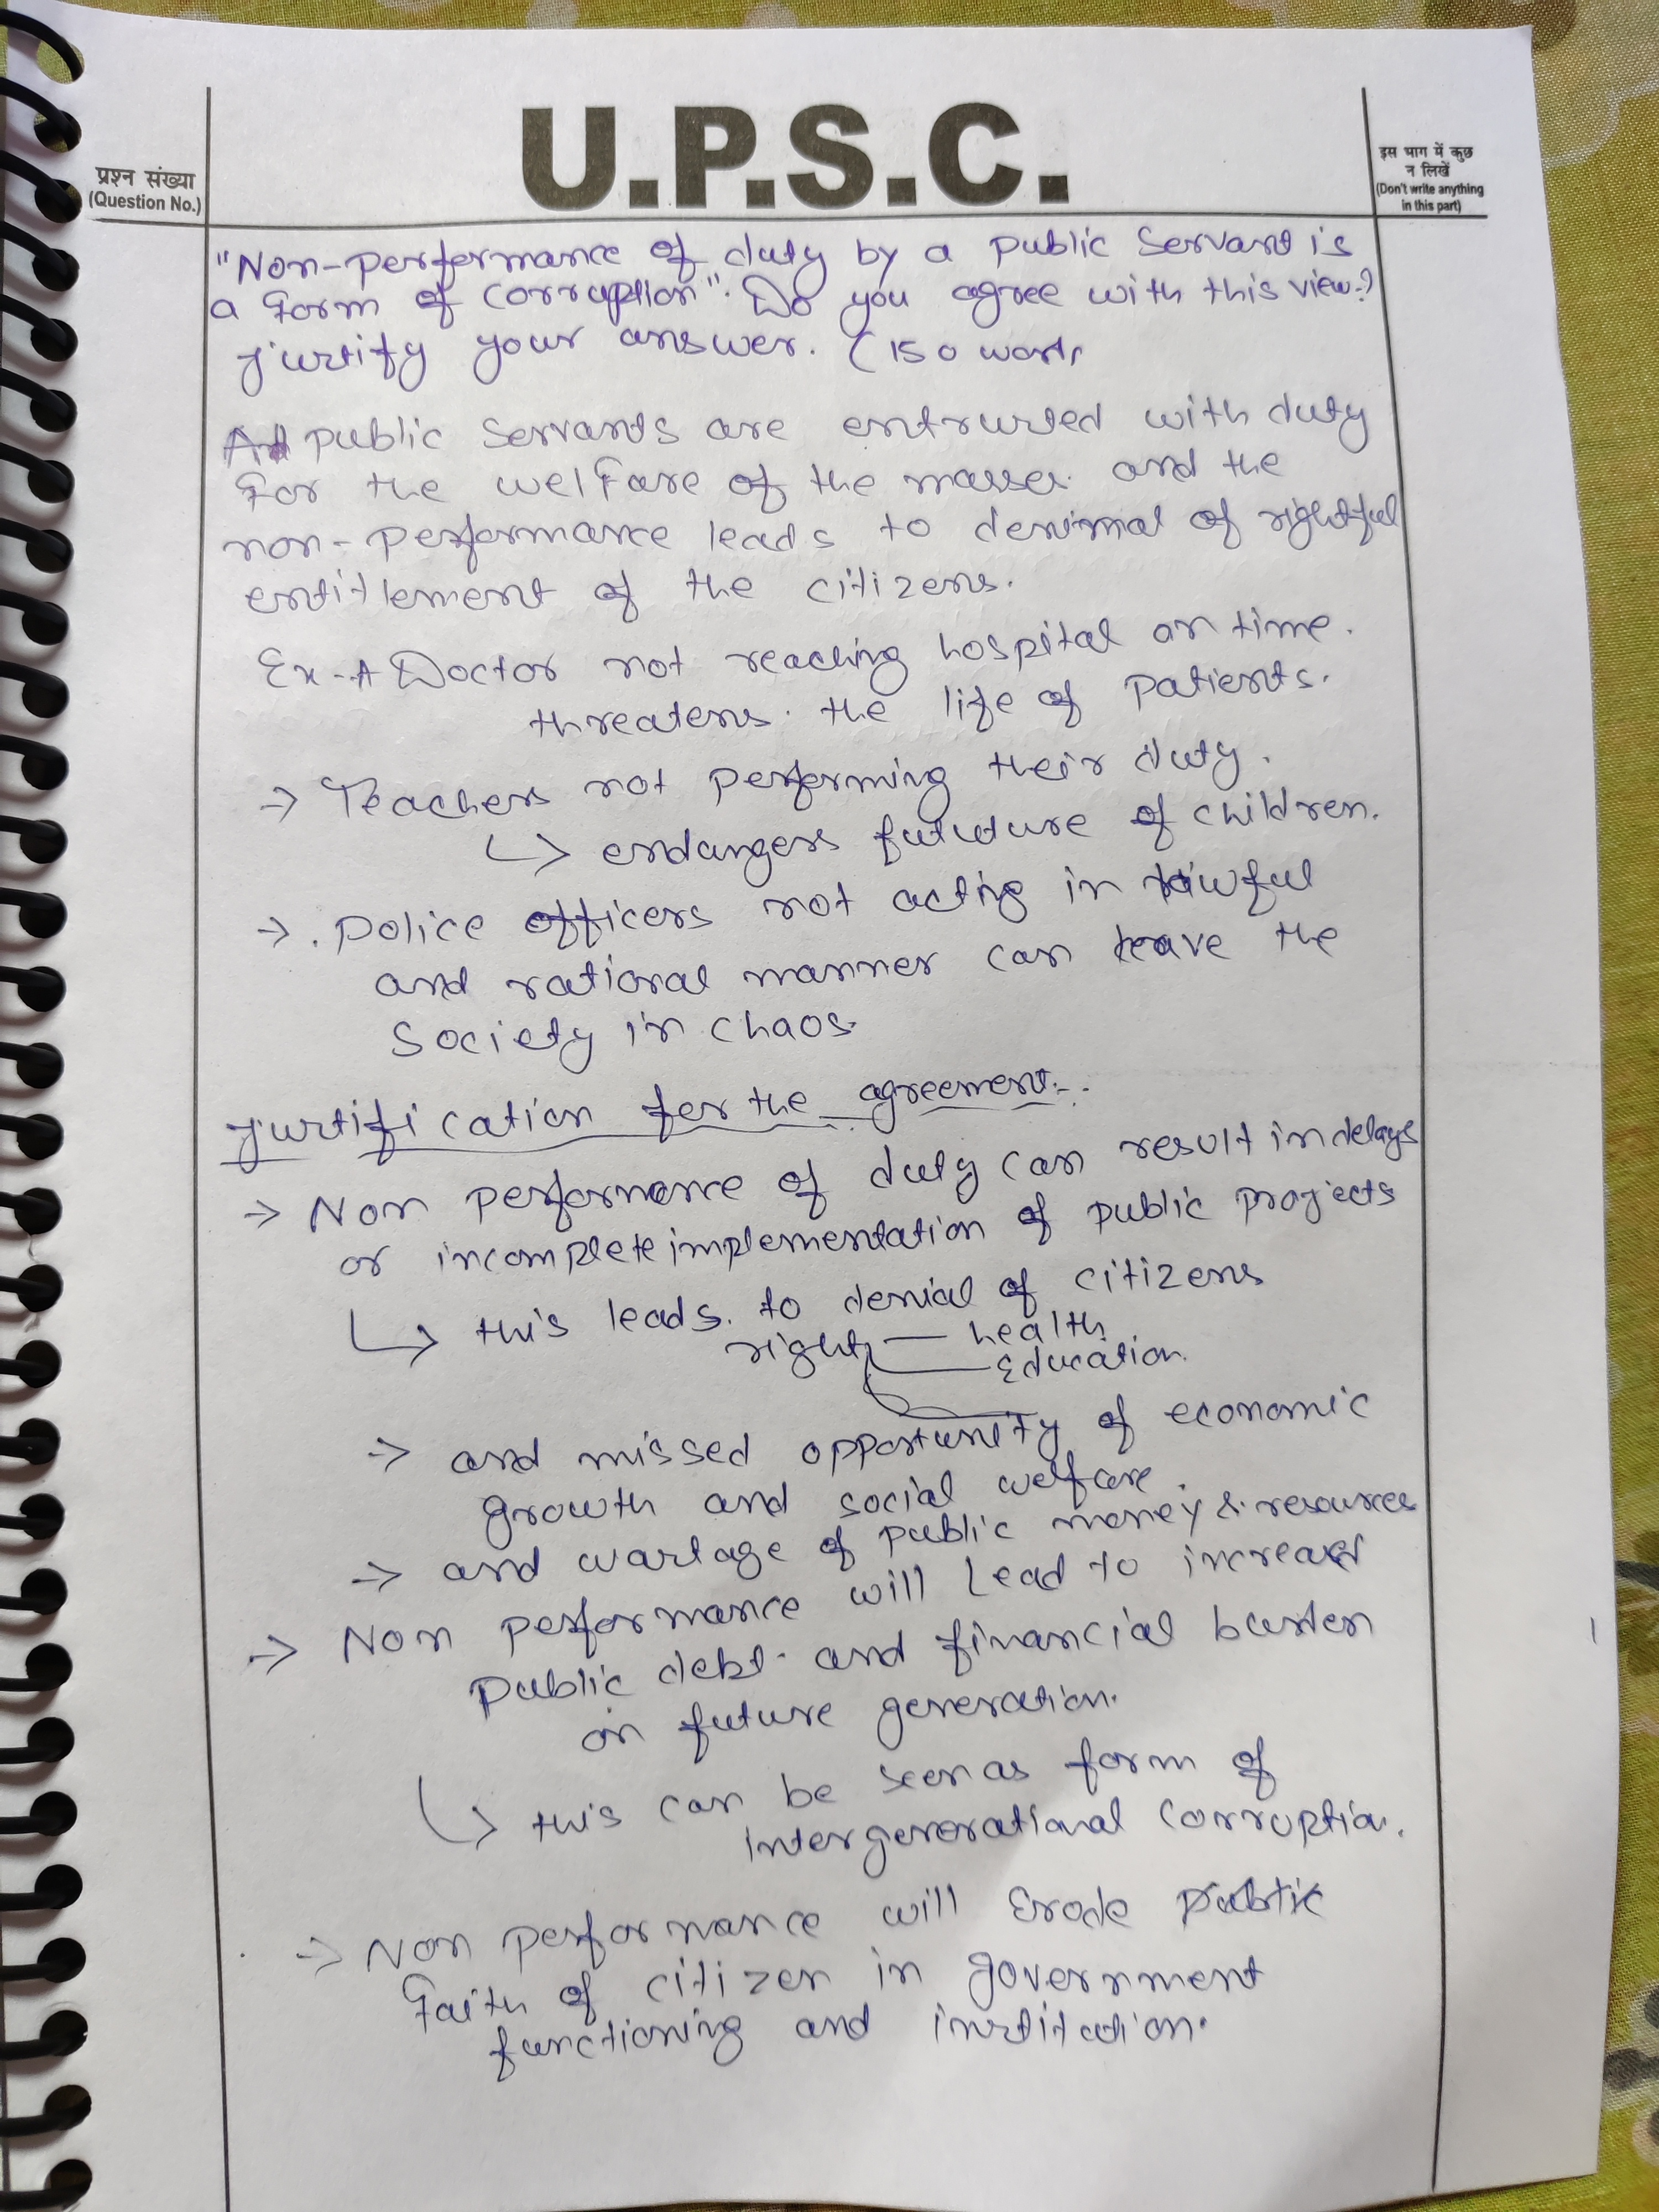 U.P.S.C.
प्रश्न संख्या
(Question No.)
इस भाग में कुछ
न लिखें
(Don't write anything
in this part)
"Non-performance of duty by a public servant is
a form of corruption". Do you agree with this view?
Justify your answer. (150 words
public servants are entrusted with duty
for the welfare of the masses and the
non-performance leads to denimal of rightful
entitlement of the citizens.
Ex - A Doctor not reaching hospital on time.
threatens the life of patients.
→ Teachers not performing their duty.
↳ endangers fututure of children.
→ . police officers not acting in lawful
and rational manner can leave the
society in chaos
Justification for the agreement:-
→ Non performance of duty can result in delays
or incomplete implementation of public projects
↳ this leads to denial of citizens
right — health
— Education.
→ and missed opportunity of economic
growth and social welfare.
→ and wastage of public money & resources
→ Non performance will lead to increased
public debt and financial burden
on future generation.
↳ this can be seen as form of
intergenerational corruption.
→ Non performance will Erode public
faith of citizen in government
functioning and institution.